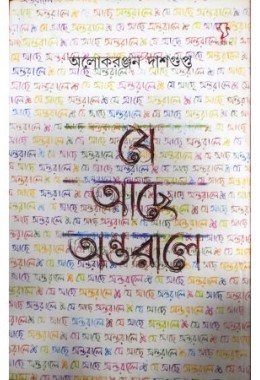 অলোকরঞ্জন দাশগুপ্ত
যে
আছে
অন্তরালে